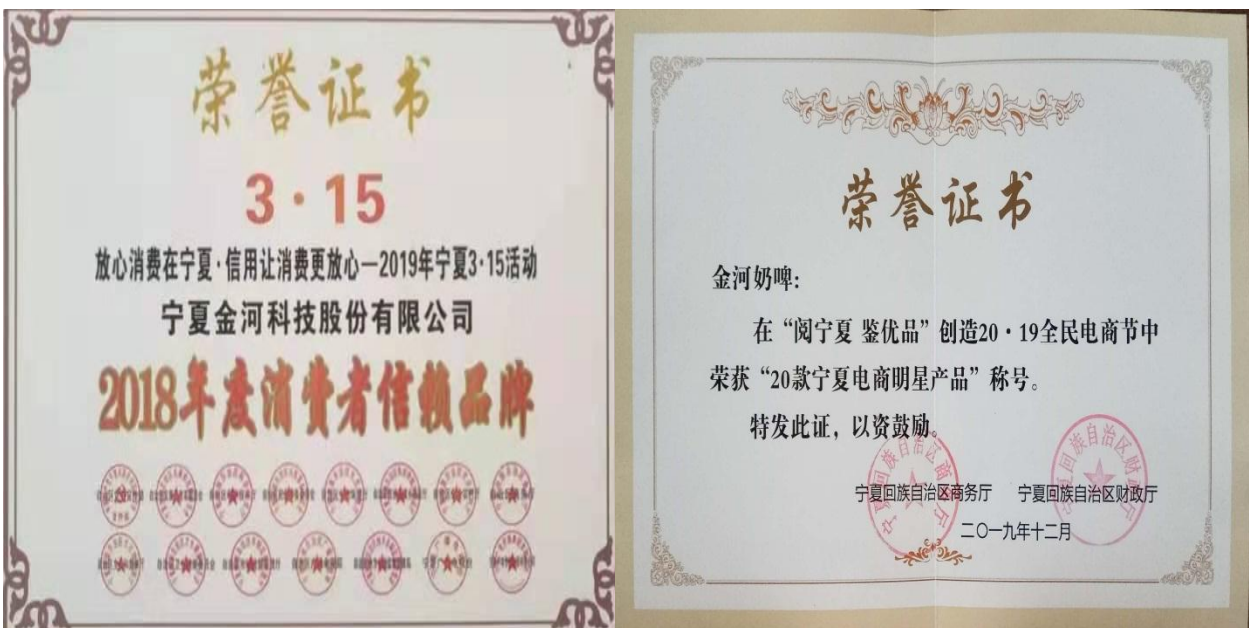 荣誉证书
3·15
放心消费在宁夏·信用让消费更放心—2019年宁夏3·15活动
宁夏金河科技股份有限公司
2018年度消费者信赖品牌
荣誉证书
金河奶啤:
在“阅宁夏 鉴优品”创造20·19全民电商节中
荣获“20款宁夏电商明星产品”称号。
特发此证，以资鼓励。
宁夏回族自治区商务厅 宁夏回族自治区财政厅
二〇一九年十二月